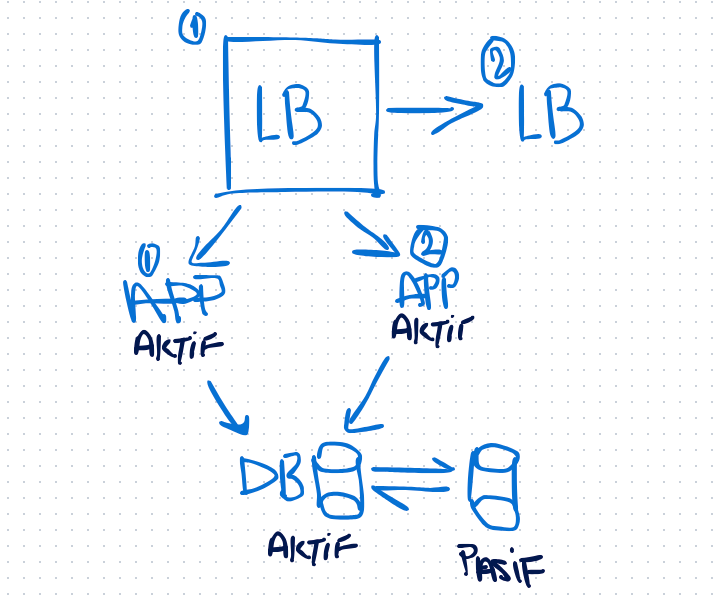 ①
LB
②
LB
①
APP
AKTİF
②
APP
AKTİF
DB
AKTİF
PASİF